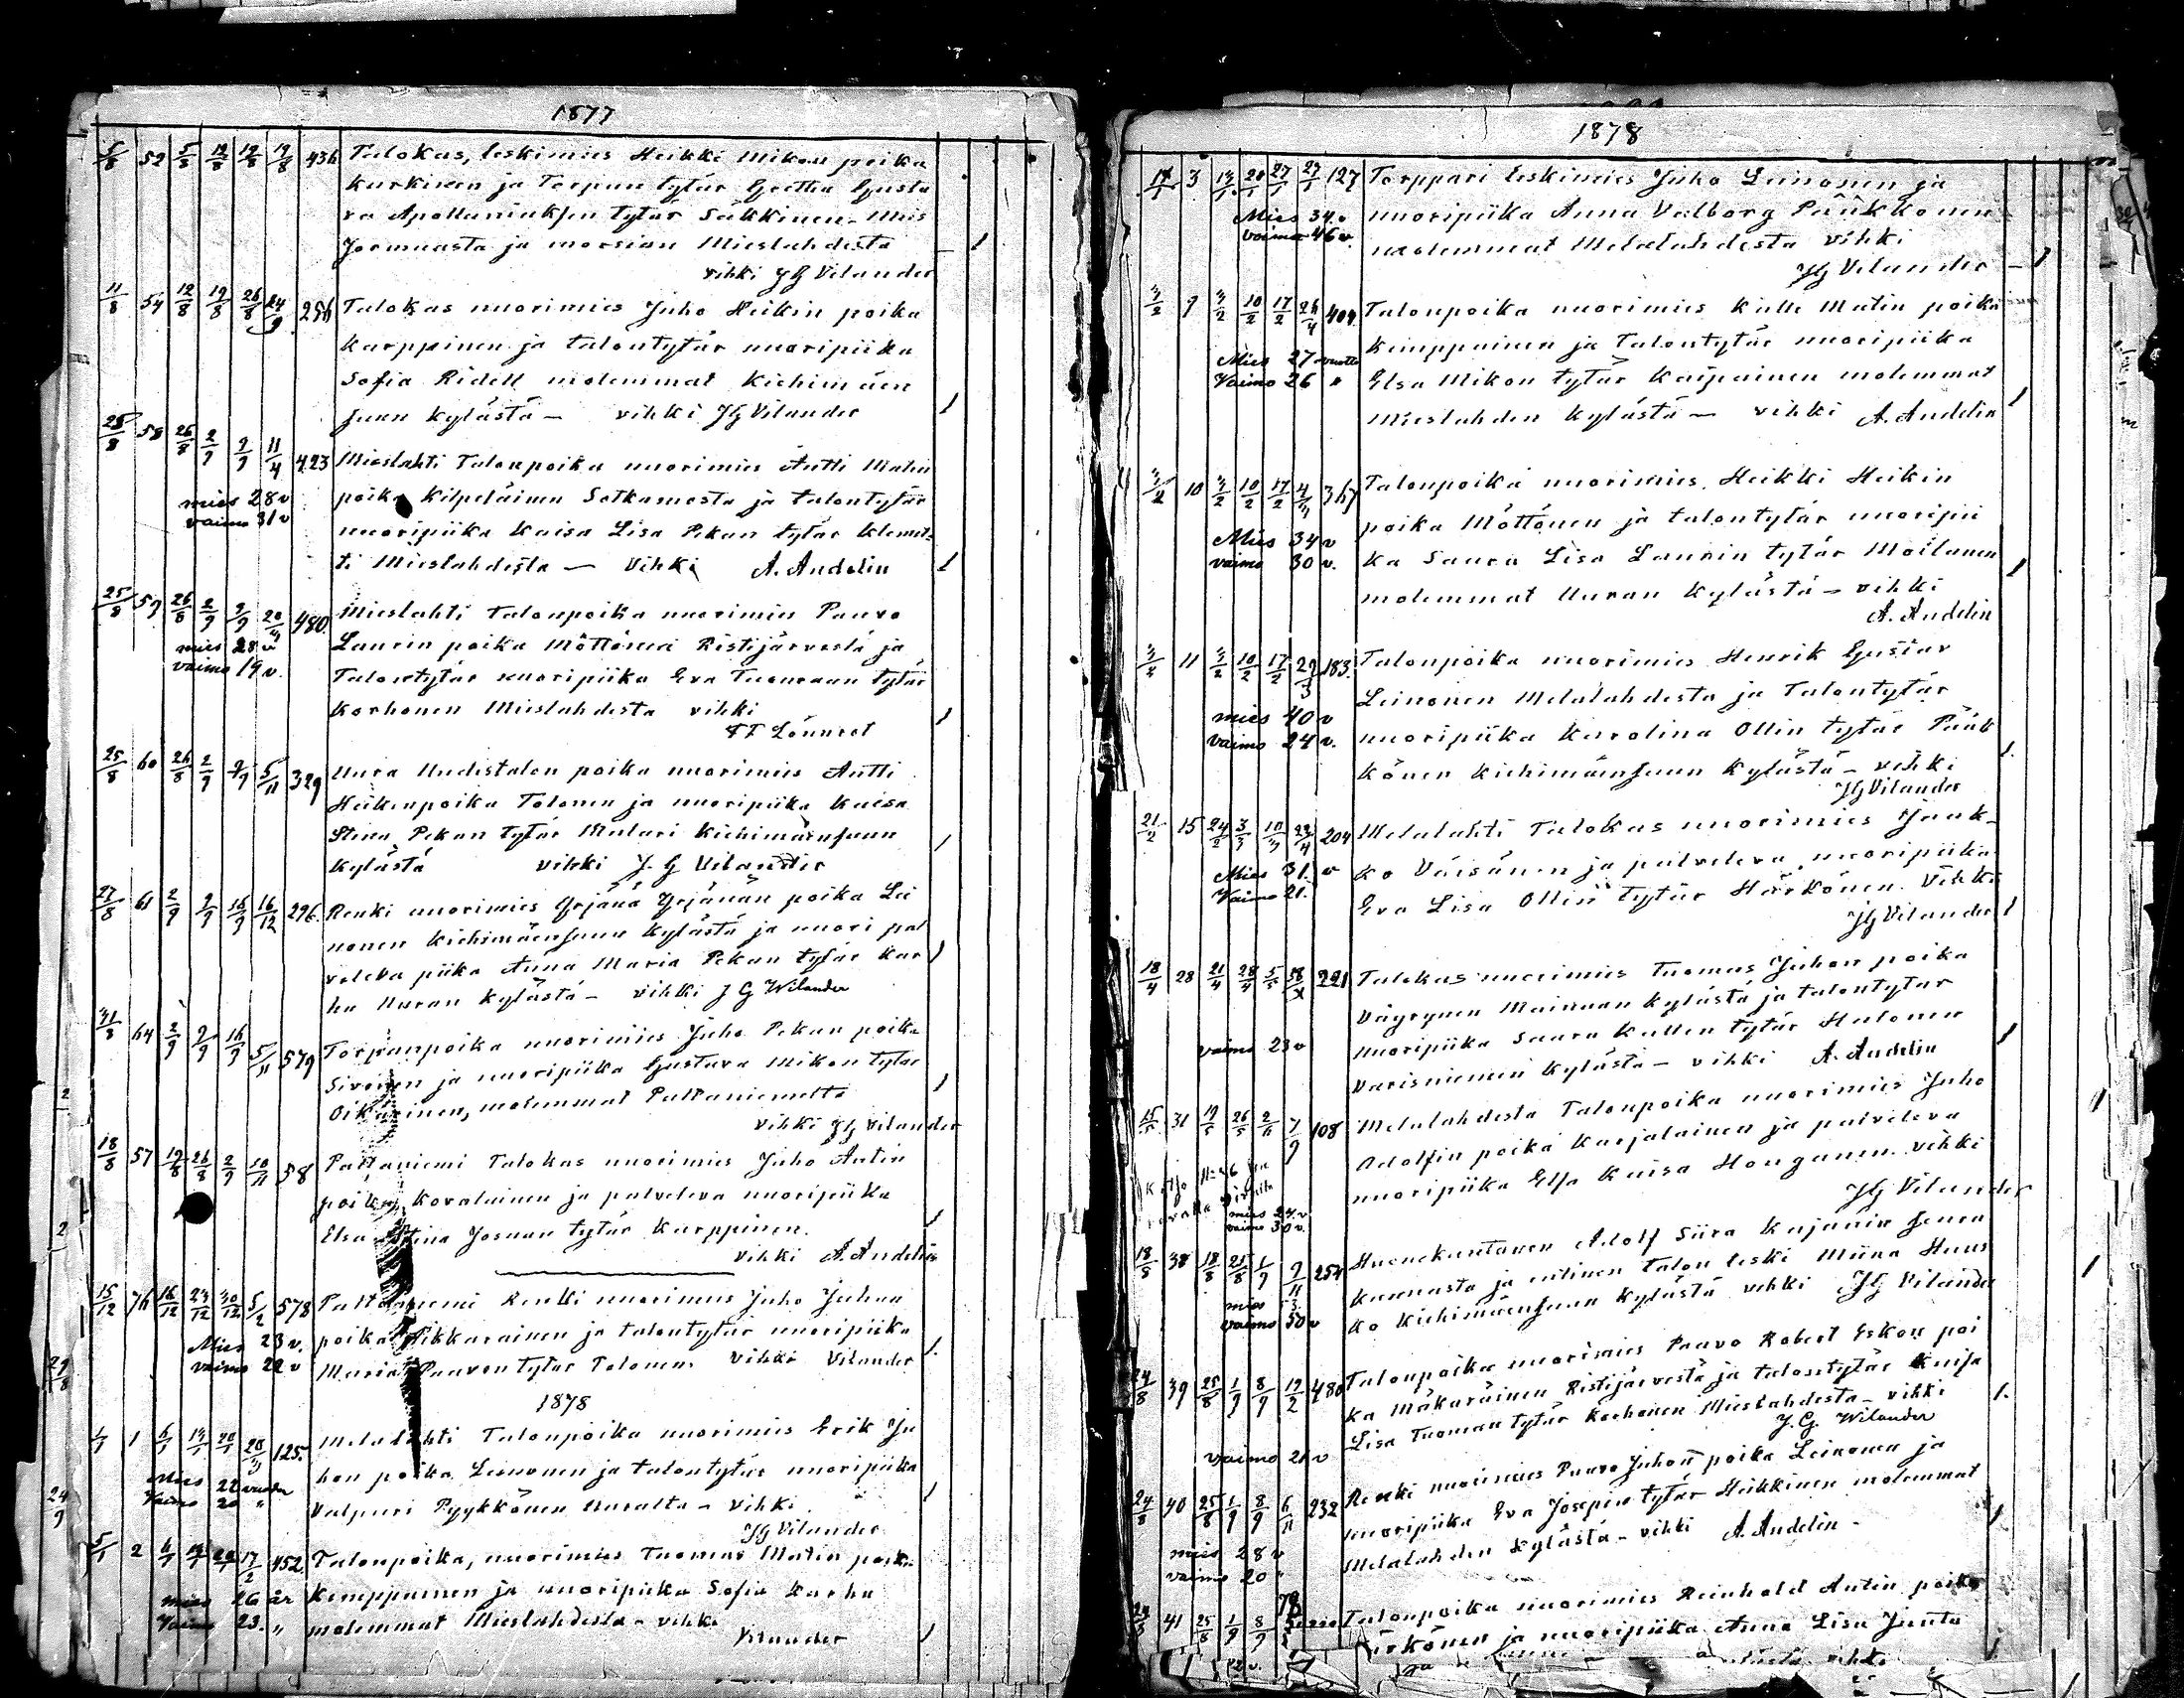 1877
5/8 52 5/8 12/8 19/8 19/8 436 Talokas, leskimies Heikki Mikon poika
Kurkinen ja Torpan tytär Greetta Gusta
va Apollaniuksen tytär Säkkinen - Mies
Jormuasta ja morsian Mieslahdesta
vihki JG Vilander
11/8 54 12/8 19/8 26/8 24/9 256 Talokas nuorimies Juho Heikin poika
Karppinen ja talontytär nuoripiika
Sofia Ridell molemmat Kiehimäen
suun kylästä - vihki JG Vilander
25/8 58 26/8 2/9 9/9 11/4 423 Mieslahti Talonpoika nuorimies Antti Matin
mies 28 v poika Kilpeläinen Sotkamosta ja talontytär
vaimo 31 v nuoripiika Kaisa Lisa Pekan tytär Klemet-
ti Mieslahdesta - Vihki A. Andelin
25/8 59 26/8 2/9 9/9 480 Mieslahti talonpoika nuorimies Paavo
mies 28 v Laurin poika Möttönen Ristijärvestä ja
vaimo 19 v. Talontytär nuoripiika Eva Tuomaan tytär
Korhonen Mieslahdesta vihki
Lönnrot
25/8 60 26/8 2/9 9/9 5/11 329 Uura Uudistalon poika nuorimies Antti
Heikinpoika Tolonen ja nuoripiika Kaisa
Stina Pekan tytär Mulari Kiehimäensuun
kylästä vihki J. G Vilander
27/8 61 2/9 9/9 16/9 16/12 296. Renki nuorimies Yrjänä Yrjänän poika Lei
nonen Kiehimäensuun kylästä ja nuori pal
veleva piika Anna Maria Pekan tytär Kar
hu Uuran kylästä - vihki J G Wilander
31/8 64 2/9 9/9 16/9 5/11 579 Torpanpoika nuorimies Juho Pekan poika
Sivonen ja nuoripiika Gustava Mikon tytär
Oikarinen, molemmat Paltaniemeltä
vihki JG Vilander
18/8 57 19/8 26/8 2/9 10/11 58 Paltaniemi Talokas nuorimies Juho Antin
poika Kovalainen ja palveleva nuoripiika
Elsa Stina Josuan tytär Karppinen.
vihki A. Andelin
15/12 76 16/12 23/12 30/12 5/2 578 Paltaniemi Renki nuorimies Juho Juhan
Mies 23 v. poika Pikkarainen ja talontytär nuoripiika
vaimo 22 v Maria Paavon tytär Tolonen. Vihki Vilander
1878
1 6/1 13/1 20/1 125. Melalahti Talonpoika nuorimies Erik Ju
Mies 22 vuoden hon poika Leinonen ja talontytär nuoripiika
Vaimo 20 " Valpuri Pyykkönen Uuralta - vihki
JG Vilander
5/1 2 6/1 13/1 20/1 17/2 452. Talonpoika, nuorimies Tuomas Matin poika
mies 26 år Kemppainen ja nuoripiika Sofia Karhu
Vaimo 23. " molemmat Mieslahdesta - vihki
Vilander
1878
3 13/1 20/1 27/1 27/1 127 Torppari leskimies Juho Leinonen ja
Mies 34. nuoripiika Anna Valborg Pääkkönen
vaimo 46 v. molemmat Melalahdesta vihki
JG Vilander
7 3/2 10/2 17/2 26/4 409 Talonpoika nuorimies Kalle Matin poika
Mies 27 vuotta Kemppainen ja Talontytär nuoripiika
Vaimo 26 " Elsa Mikon tytär Kaipainen molemmat
Mieslahden kylästä - vihki A. Andelin
10 3/2 10/2 17/2 367 Talonpoika nuorimies Heikki Heikin
Mies 34 v poika Möttönen ja talontytär nuoripii
vaimo 30 v. ka Saara Lisa Laurin tytär Moilanen
molemmat Uuran kylästä - vihki
A. Andelin
11 3/2 10/2 17/2 29/3 183. Talonpoika nuorimies Henrik Gustav
Leinonen Melalahdesta ja Talontytär
mies 40 v
vaimo 24 v. nuoripiika Karolina Ollin tytär Pääk
könen Kiehimäensuun kylästä - vihki
JG Vilander
21/2 15 24/2 3/3 10/3 22/4 204 Melalahti Talokas nuorimies Jaak-
Mies 31. v ko Väisänen ja palveleva nuoripiika
Vaimo 21. Eva Lisa Ollin tytär Härkönen. Vihki
JG Vilander
18/4 28 21/4 28/4 5/5 221 Talokas nuorimies Tuomas Juhon poika
Väyrynen Mainuan kylästä ja talontytär
vaimo 23 v nuoripiika Saara Kallen tytär Hulonen
Varisniemen kylästä - vihki A. Andelin
15/5 31 19/5 26/5 2/6 7/9 108 Melalahdesta Talonpoika nuorimies Juho
Adolfin poika Karjalainen ja palveleva
mies 24. v nuoripiika Elsa Kaisa Honganen. vihki
vaimo 30 v. JG Vilander
18/8 38 18/8 25/8 1/9 9/11 254 Huonekuntanen Adolf Siira Kajaanin seura
kunnasta ja entinen talon leski Miina Huus
vaimo 50 v ko Kiehimäensuun kylästä vihki JG Vilander
24/8 39 25/8 1/9 8/9 19/2 480 Talonpoika nuorimies Paavo Robert Eskon poi
ka Mäkäräinen Ristijärvestä ja talontytär Kaisa
Lisa Tuoman tytär Korhonen Mieslahdesta - vihki
vaimo 21 v J. G. Wilander
24/8 40 25/8 1/9 8/9 6/11 232 Renki nuorimies Paavo Juhon poika Leinonen ja
nuoripiika Eva Josepin tytär Heikkinen molemmat
mies 28 v Melalahden kylästä - vihki A. Andelin -
vaimo 20 "
41 25/8 1/9 8/9 Talonpoika nuorimies Reinhold Antin poika
ja nuoripiika Anna Lisa Juuta